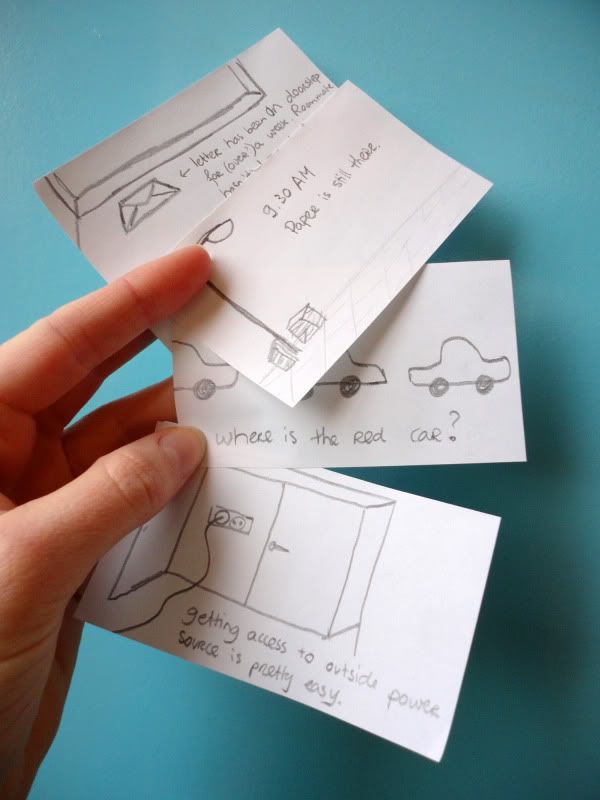 ← letter has been on doorstep
for (over) a week. Roommate
9.30 AM
Paper is still there.
where is the red car?
getting access to outside power
source is pretty easy.